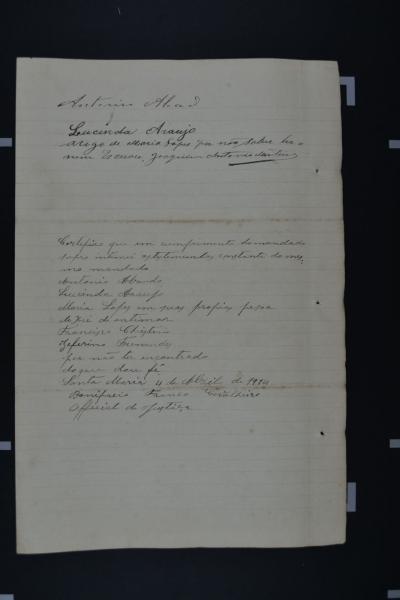 Antonio Abad
Lucinda Araujo
Arogo de Maria Lopes por não saber ler e
nem Escrever, Joaquim Antonio
Certifico que em cumprimento do mandado
supra intimei as testemunhas constante do mes
mo mandado
Antonio Abado
Lucinda Araujo
Maria Lopes em suas proprias pessoa
deixei de intimar
Francisco
Zeferino Fernandes
por não ter encontrado
do que dou fé
Santa Maria 4 de Abril de 1914
Bonifacio Franco
Official de Justiça